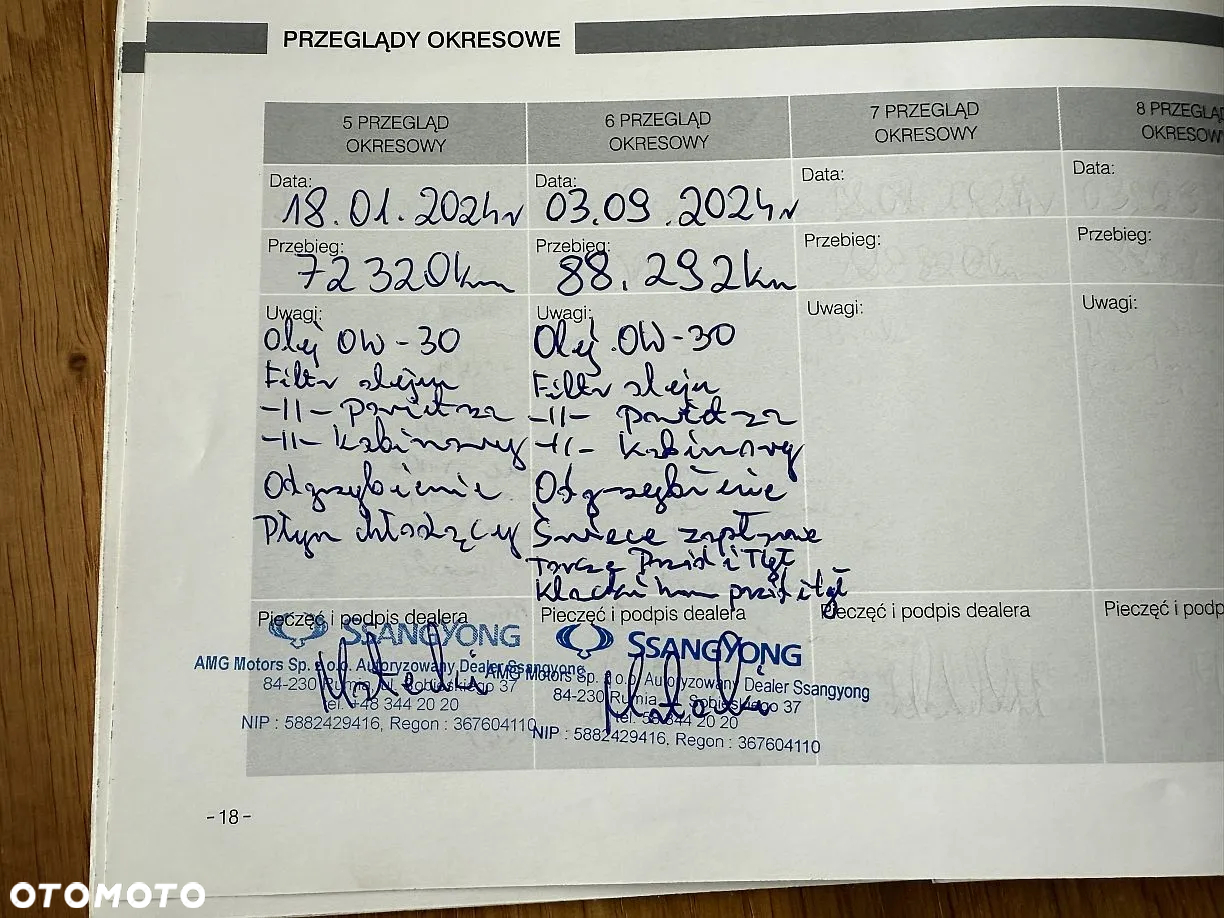 PRZEGLĄDY OKRESOWE
5 PRZEGLĄD
OKRESOWY
Data:
18.01.2024r
Przebieg:
72320km
Uwagi:
Olej 0W-30
Filtr oleju
-II- powietrza
-II- kabinowy
Odgrzybienie
Płyn chłodzący
Pieczęć i podpis dealera
SSANGYONG
AMG Motors Sp. z o.o. Autoryzowany Dealer Ssangyong
84-230 Rumia, ul. Sobieskiego 37
tel. +48 344 20 20
NIP : 5882429416, Regon : 367604110
6 PRZEGLĄD
OKRESOWY
Data:
03.09.2024r
Przebieg:
88.292km
Uwagi:
Olej 0W-30
Filtr oleju
-II- powietrza
-II- kabinowy
Odgrzybienie
Świece zapłonowe
Tarcze Przód i Tył
Klocki ham przód i tył
Pieczęć i podpis dealera
SSANGYONG
AMG Motors Sp. z o.o. Autoryzowany Dealer Ssangyong
84-230 Rumia, Sobieskiego 37
tel. 58 344 20 20
NIP : 5882429416, Regon : 367604110
7 PRZEGLĄD
OKRESOWY
Data:
Przebieg:
Uwagi:
Pieczęć i podpis dealera
8 PRZEGLĄ
OKRESOW
Data:
Przebieg:
Uwagi:
Pieczęć i podp
-18-
OTOMOTO